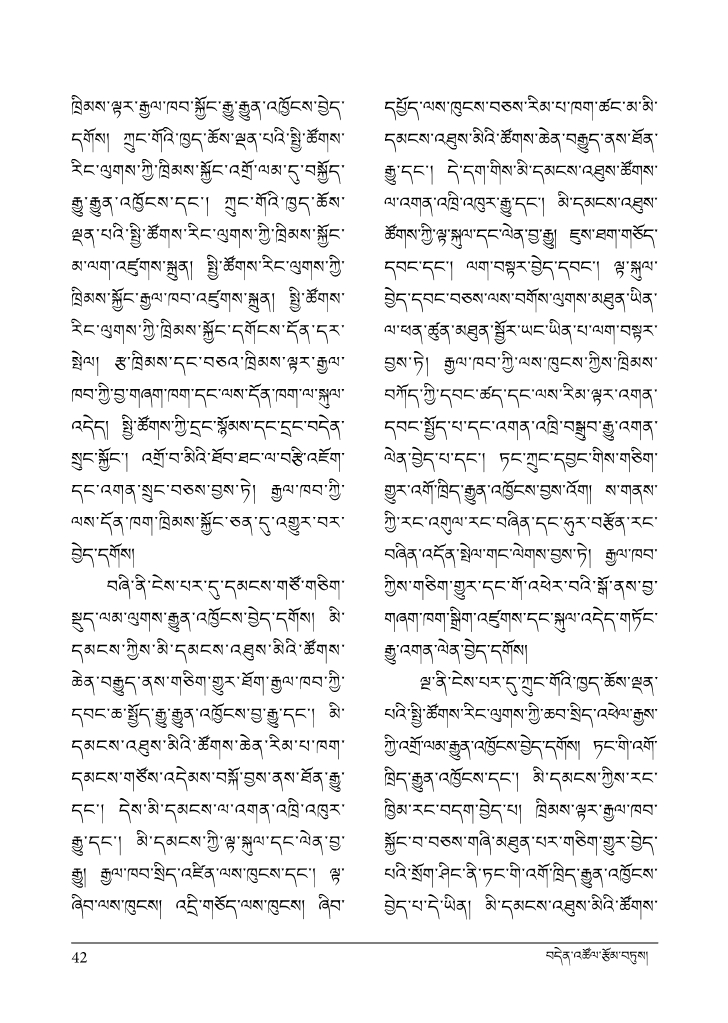 ཁྲིམས་ལྟར་རྒྱལ་ཁབ་སྐྱོང་རྒྱུ་རྒྱུན་འཁྱོངས་བྱེད་
དགོས། ཀྲུང་གོའི་ཁྱད་ཆོས་ལྡན་པའི་སྤྱི་ཚོགས་
རིང་ལུགས་ཀྱི་ཁྲིམས་སྐྱོང་འགྲོ་ལམ་དུ་བསྐྱོད་
རྒྱུ་རྒྱུན་འཁྱོངས་དང་། ཀྲུང་གོའི་ཁྱད་ཆོས་
ལྡན་པའི་སྤྱི་ཚོགས་རིང་ལུགས་ཀྱི་ཁྲིམས་སྐྱོང་
མ་ལག་འཛུགས་སྐྲུན། སྤྱི་ཚོགས་རིང་ལུགས་ཀྱི་
ཁྲིམས་སྐྱོང་རྒྱལ་ཁབ་འཛུགས་སྐྲུན། སྤྱི་ཚོགས་
རིང་ལུགས་ཀྱི་ཁྲིམས་སྐྱོང་དགོངས་དོན་དར་
སྤེལ། རྩ་ཁྲིམས་དང་བཅའ་ཁྲིམས་ལྟར་རྒྱལ་
ཁབ་ཀྱི་བྱ་གཞག་ཁག་དང་ལས་དོན་ཁག་ལ་སྐུལ་
འདེད། སྤྱི་ཚོགས་ཀྱི་དྲང་སྙོམས་དང་དྲང་བདེན་
སྲུང་སྐྱོང་། འགྲོ་བ་མིའི་ཐོབ་ཐང་ལ་བརྩི་འཇོག་
དང་འགན་སྲུང་བཅས་བྱས་ཏེ། རྒྱལ་ཁབ་ཀྱི་
ལས་དོན་ཁག་ཁྲིམས་སྐྱོང་ཅན་དུ་འགྱུར་བར་
བྱེད་དགོས།
བཞི་ནི་ངེས་པར་དུ་དམངས་གཙོ་གཅིག་
སྡུད་ལམ་ལུགས་རྒྱུན་འཁྱོངས་བྱེད་དགོས། མི་
དམངས་ཀྱིས་མི་དམངས་འཐུས་མིའི་ཚོགས་
ཆེན་བརྒྱུད་ནས་གཅིག་གྱུར་ཐོག་རྒྱལ་ཁབ་ཀྱི་
དབང་ཆ་སྤྱོད་རྒྱུ་རྒྱུན་འཁྱོངས་བྱ་རྒྱུ་དང་། མི་
དམངས་འཐུས་མིའི་ཚོགས་ཆེན་རིམ་པ་ཁག་
དམངས་གཙོས་འདེམས་བསྐོ་བྱས་ནས་ཐོན་རྒྱུ་
དང་། དེས་མི་དམངས་ལ་འགན་འཁྲི་འཁུར་
རྒྱུ་དང་། མི་དམངས་ཀྱི་ལྟ་སྐུལ་དང་ལེན་བྱ་
རྒྱུ། རྒྱལ་ཁབ་སྲིད་འཛིན་ལས་ཁུངས་དང་། ལྟ་
ཞིབ་ལས་ཁུངས། འདྲི་གཅོད་ལས་ཁུངས། ཞིབ་
དཔྱོད་ལས་ཁུངས་བཅས་རིམ་པ་ཁག་ཚང་མ་མི་
དམངས་འཐུས་མིའི་ཚོགས་ཆེན་བརྒྱུད་ནས་ཐོན་
རྒྱུ་དང་། དེ་དག་གིས་མི་དམངས་འཐུས་ཚོགས་
ལ་འགན་འཁྲི་འཁུར་རྒྱུ་དང་། མི་དམངས་འཐུས་
ཚོགས་ཀྱི་ལྟ་སྐུལ་དང་ལེན་བྱ་རྒྱུ། ཇུས་ཐག་གཅོད་
དབང་དང་། ལག་བསྟར་བྱེད་དབང་། ལྟ་སྐུལ་
བྱེད་དབང་བཅས་ལས་བགོས་ལུགས་མཐུན་ཡིན་
ལ་ཕན་ཚུན་མཐུན་སྦྱོར་ཡང་ཡིན་པ་ལག་བསྟར་
བྱས་ཏེ། རྒྱལ་ཁབ་ཀྱི་ལས་ཁུངས་ཀྱིས་ཁྲིམས་
བཀོད་ཀྱི་དབང་ཚད་དང་ལས་རིམ་ལྟར་འགན་
དབང་སྤྱོད་པ་དང་འགན་འཁྲི་བསྒྲུབ་རྒྱུ་འགན་
ལེན་བྱེད་པ་དང་། ཏང་ཀྲུང་དབྱང་གིས་གཅིག་
གྱུར་འགོ་ཁྲིད་རྒྱུན་འཁྱོངས་བྱས་འོག ས་གནས་
ཀྱི་རང་འགུལ་རང་བཞིན་དང་ཧུར་བརྩོན་རང་
བཞིན་འདོན་སྤེལ་གང་ལེགས་བྱས་ཏེ། རྒྱལ་ཁབ་
ཀྱིས་གཅིག་གྱུར་དང་གོ་འཕེར་བའི་སྒོ་ནས་བྱ་
གཞག་ཁག་སྒྲིག་འཛུགས་དང་སྐུལ་འདེད་གཏོང་
རྒྱུ་འགན་ལེན་བྱེད་དགོས།
ལྔ་ནི་ངེས་པར་དུ་ཀྲུང་གོའི་ཁྱད་ཆོས་ལྡན་
པའི་སྤྱི་ཚོགས་རིང་ལུགས་ཀྱི་ཆབ་སྲིད་འཕེལ་རྒྱས་
ཀྱི་འགྲོ་ལམ་རྒྱུན་འཁྱོངས་བྱེད་དགོས། ཏང་གི་འགོ་
ཁྲིད་རྒྱུན་འཁྱོངས་དང་། མི་དམངས་ཀྱིས་རང་
ཁྱིམ་རང་བདག་བྱེད་པ། ཁྲིམས་ལྟར་རྒྱལ་ཁབ་
སྐྱོང་བ་བཅས་གཞི་མཐུན་པར་གཅིག་གྱུར་བྱེད་
པའི་སྲོག་ཤིང་ནི་ཏང་གི་འགོ་ཁྲིད་རྒྱུན་འཁྱོངས་
བྱེད་པ་དེ་ཡིན། མི་དམངས་འཐུས་མིའི་ཚོགས་
42
བདེན་འཚོལ་རྩོམ་བཏུས།